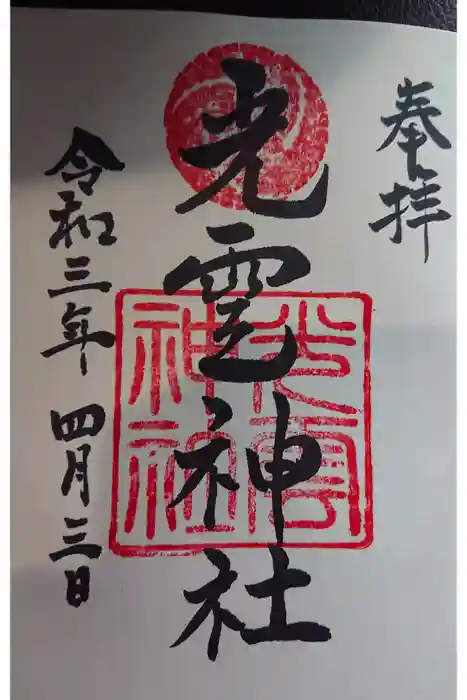 奉拝
光雲神社
光雲
神社
令和三年 四月三日